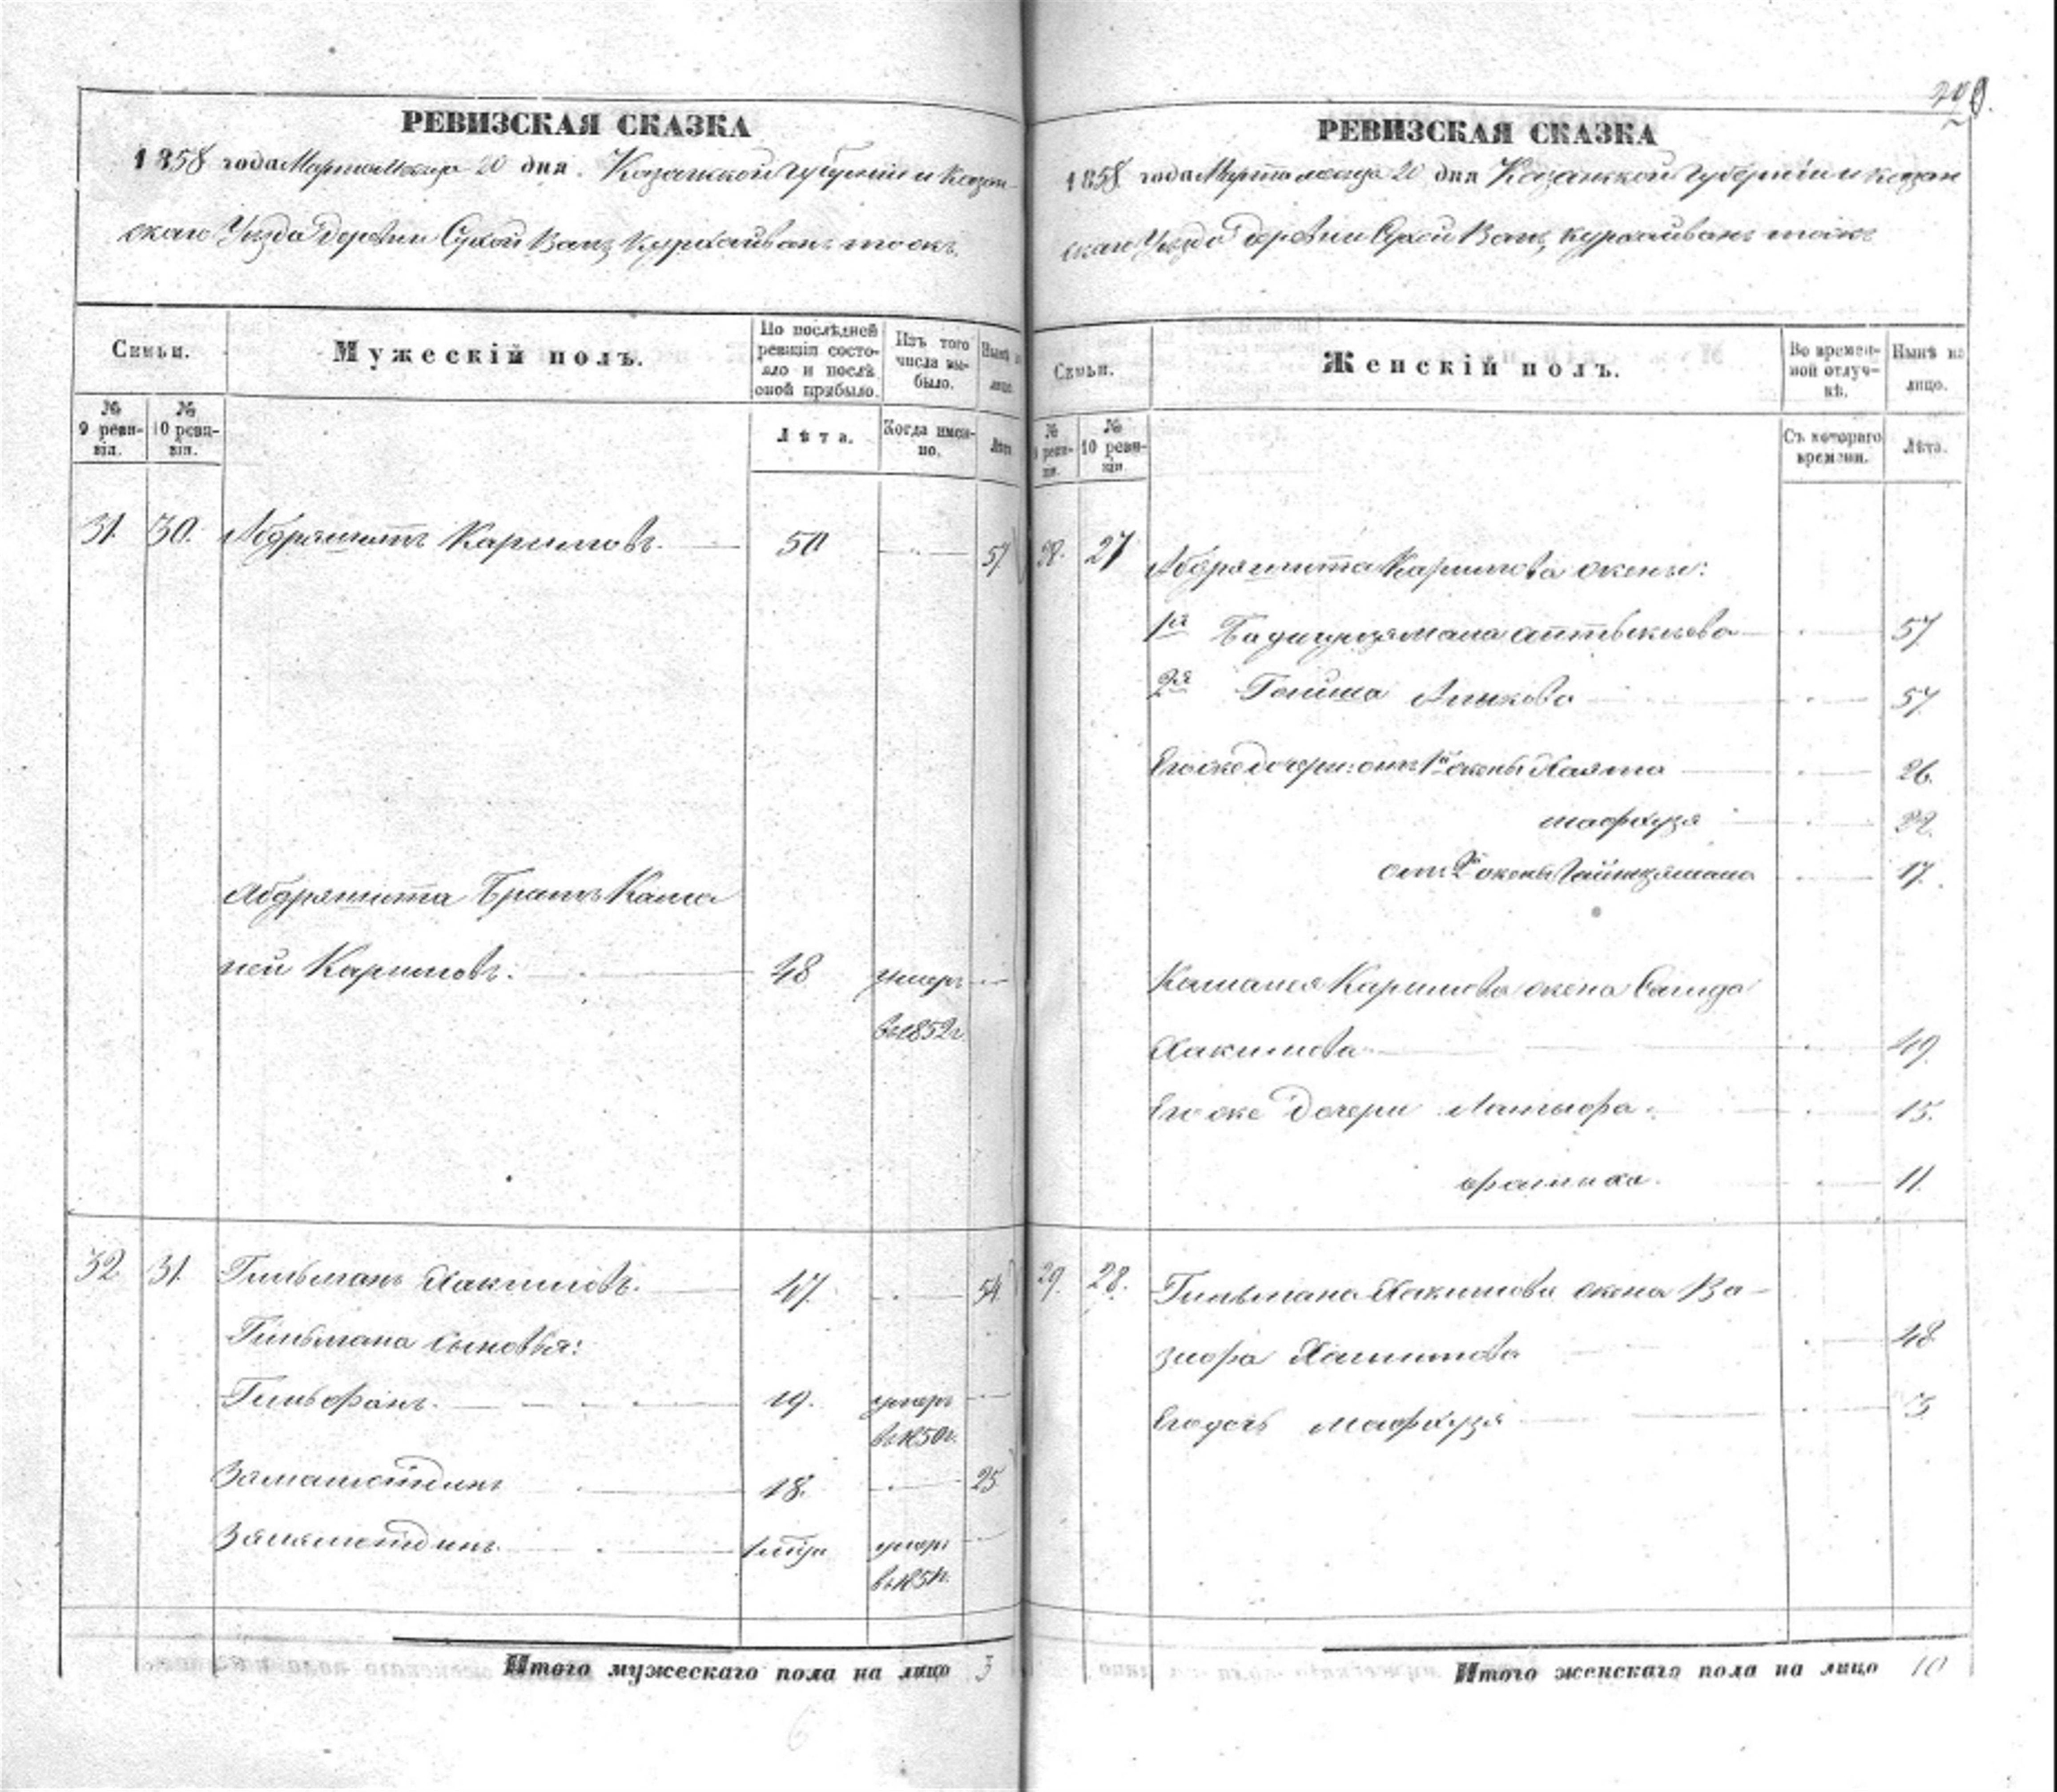 209.
РЕВИЗСКАЯ СКАЗКА
1858 года Марта месяца 20 дня. Казанской губернии и Казан-
скаго Уезда деревни Сухой
Семьи.
Мужескій полъ.
По послѣдней ревизіи состояло и послѣ оной прибыло.
Изъ того числа выбыло.
Нынѣ на лицо.
№ 9 ревизіи.
№ 10 ревизіи.
Лѣта.
Когда именно.
Лѣта
31. 30. Абдряшитъ Каримовъ. 50 57
Абдряшита Братъ Кама
ней Каримовъ. 48 умеръ
въ 1852 г.
32 31. Гильманъ Хакимовъ. 47. 54
Гильмана сыновья:
Гильфанъ. 19. умеръ
въ 1850 г.
18. 25
умеръ
Итого мужескаго пола на лицо 3
РЕВИЗСКАЯ СКАЗКА
1858 года Марта месяца 20 дня Казанской Губернии и Казан
скаго Уезда деревни Сухой
Семьи.
Женскій полъ.
Во временной отлучкѣ.
Нынѣ на лицо.
№ 9 ревизіи.
№ 10 ревизіи
Съ котораго времени.
Лѣта.
28. 27 Абдряшита Каримова жены:
1я 57
2я 57
Его же дочери: отъ 1й жены Хаята 26.
Мафхузя 22.
отъ 2й жены 17.
Каманея Каримова жена Сагида
Хакимова 49.
Его же дочери Латыфа. 15.
11.
29. 28. Гильмана Хакимова жена Ва-
зифа 48
Его дочь Мафхузя 3
Итого женскаго пола на лицо 10